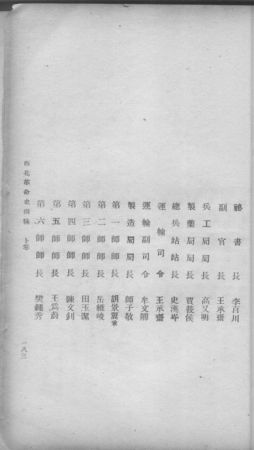 秘書長　李百川
副官長　王承齋
兵工局局長　高又明
製藥局局長　賈
總兵站站長　史漢
運輸司令　王承齋
運輸副司令　牟文
製造局局長　師子敬
第一師師長　胡景翼兼
第二師師長　岳維峻
第三師師長　田玉潔
第四師師長　陳文釗
第五師師長　王爲蔚
第六師師長　樊鍾秀
西北革命史　下卷
一八三